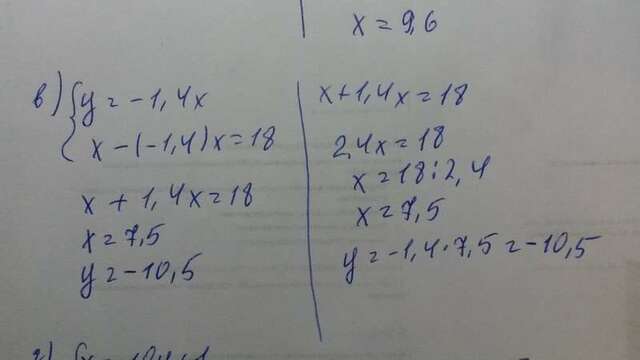 x = 9,6
в) { y = -1,4x
x - (-1,4)x = 18
x + 1,4x = 18
x = 7,5
y = -10,5
x + 1,4x = 18
2,4x = 18
x = 18:2,4
x = 7,5
y = -1,4·7,5 = -10,5